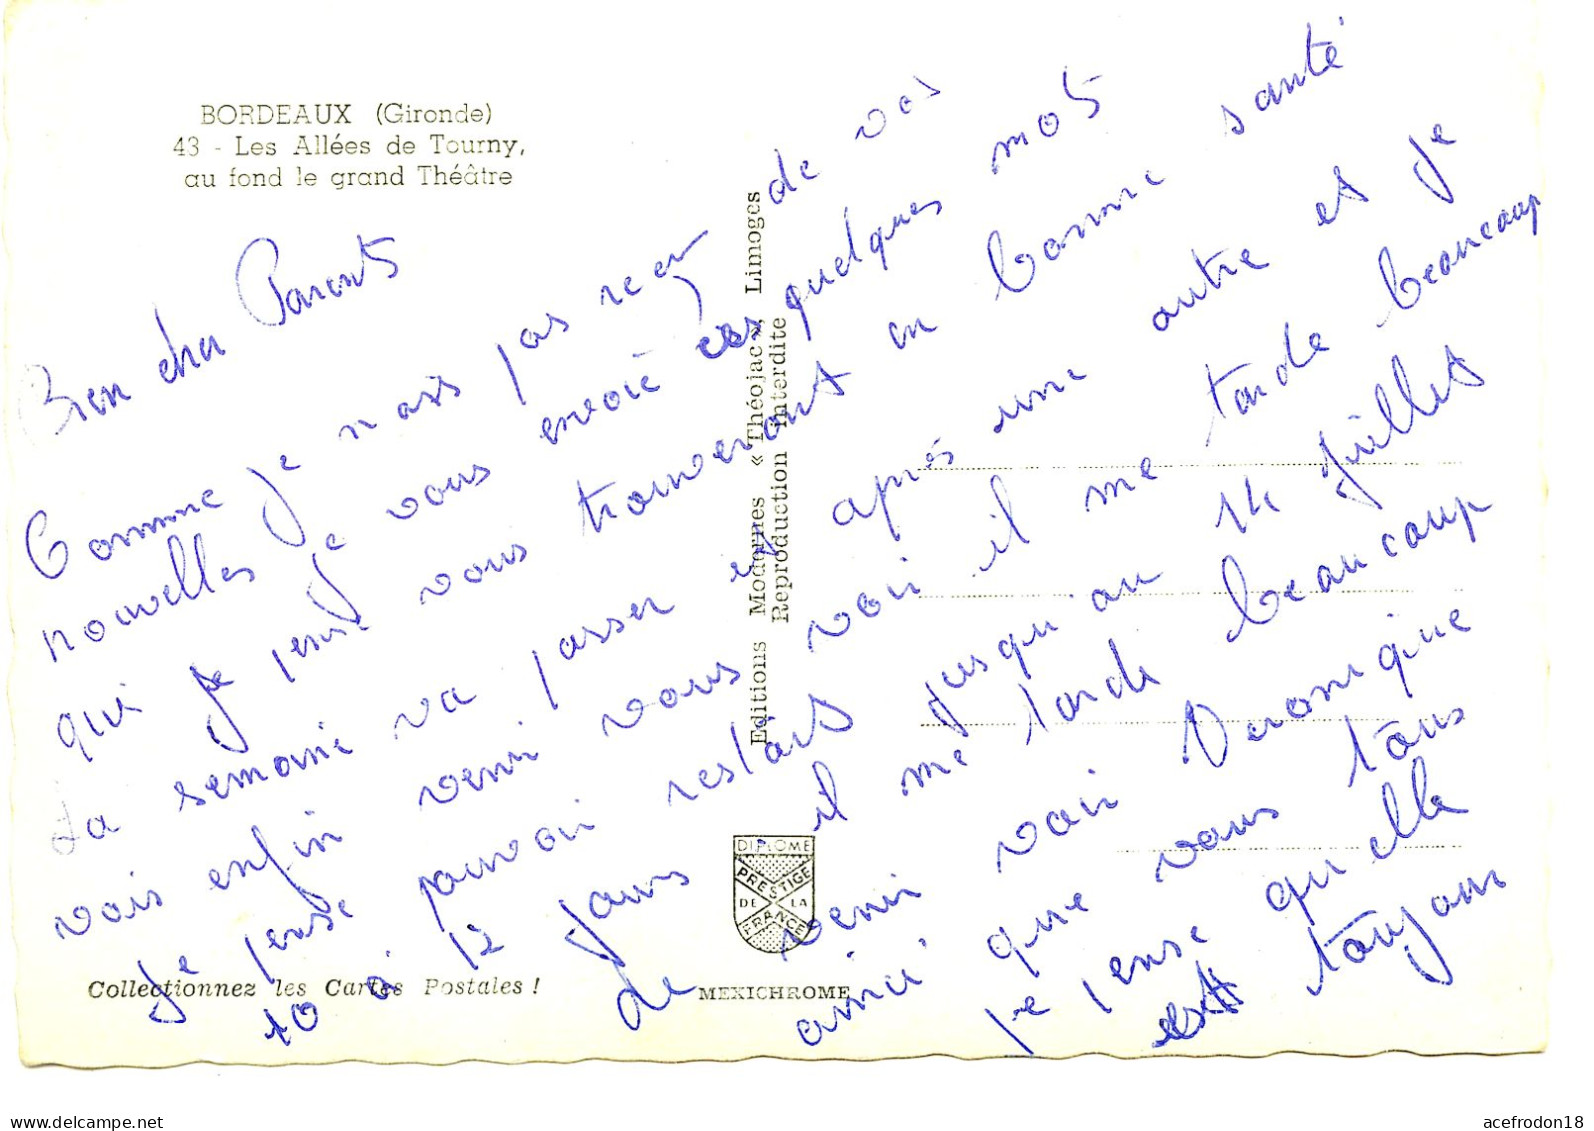 BORDEAUX (Gironde)
43 - Les Allées de Tourny,
au fond le grand Théâtre
Bien cher Parents
Comme je n'ais pas reçu de vos
nouvelles je vous envoie ces quelques mots
qui je pense vous trouveront en bonne santé
La semaine va passer et après une autre et je
vais enfin venir vous voir il me tarde beaucoup
Je pense pouvoir restais jusqu'au 14 juillet
10 à 12 jours il me tarde beaucoup
de venir voir Veronique
ainsi que vous tous
je pense qu'elle
est toujour
Editions Modernes « Théojac », Limoges
Reproduction interdite
DIPLOME
PRESTIGE
DE LA
FRANCE
Collectionnez les Cartes Postales !
MEXICHROME
delcampe.net
acefrodon18